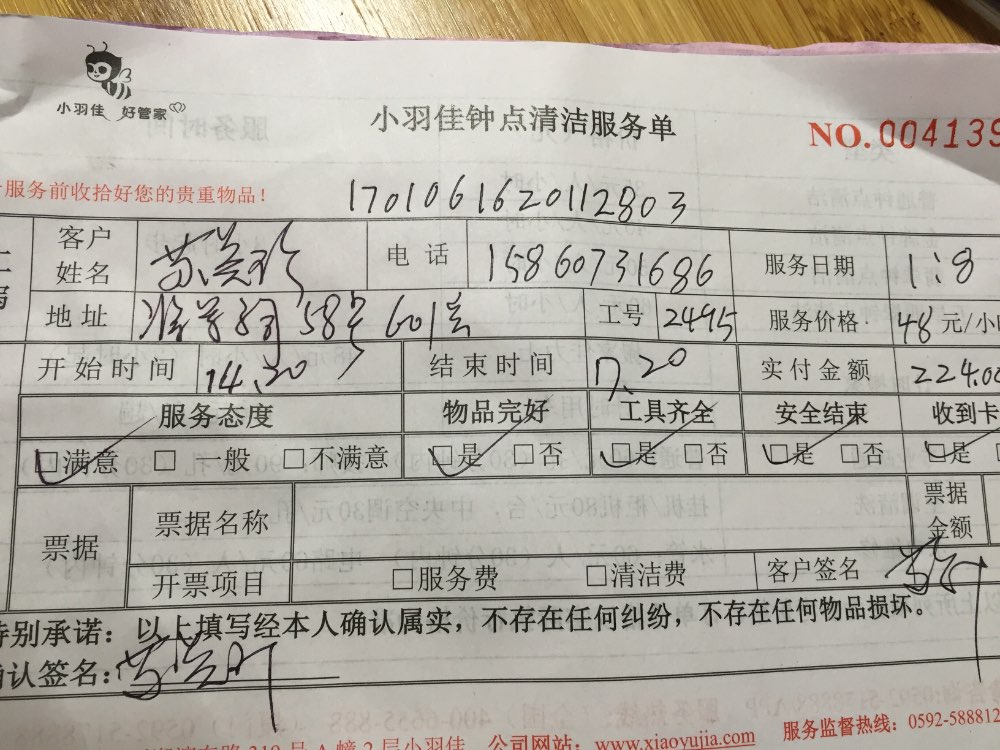 小羽佳 好管家
小羽佳钟点清洁服务单
NO. 004139
服务前收拾好您的贵重物品！
1701061620112803
客户姓名 电话 15860731686 服务日期 1.8
地址 58号601室 工号 2495 服务价格 48元/小时
开始时间 14.20 结束时间 17.20 实付金额 224.00
服务态度 物品完好 工具齐全 安全结束 收到卡
☑满意 □一般 □不满意 ☑是 □否 ☑是 □否 ☑是 □否 ☑是
票据 票据名称 票据金额
开票项目 □服务费 □清洁费 客户签名
特别承诺：以上填写经本人确认属实，不存在任何纠纷，不存在任何物品损坏。
确认签名：
服务监督热线：0592-588812
路319号A幢2层小羽佳 公司网站：www.xiaoyujia.com